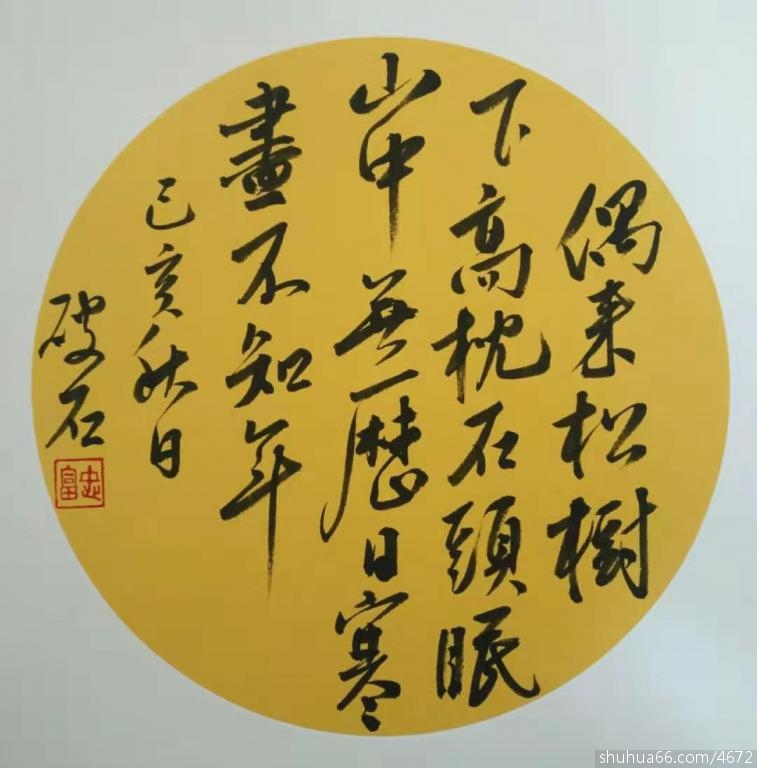 偶来松樹
下高枕石頭眠
山中無歷日寒
盡不知年
己亥秋日
破石
忠富
shuhua66.com/4672